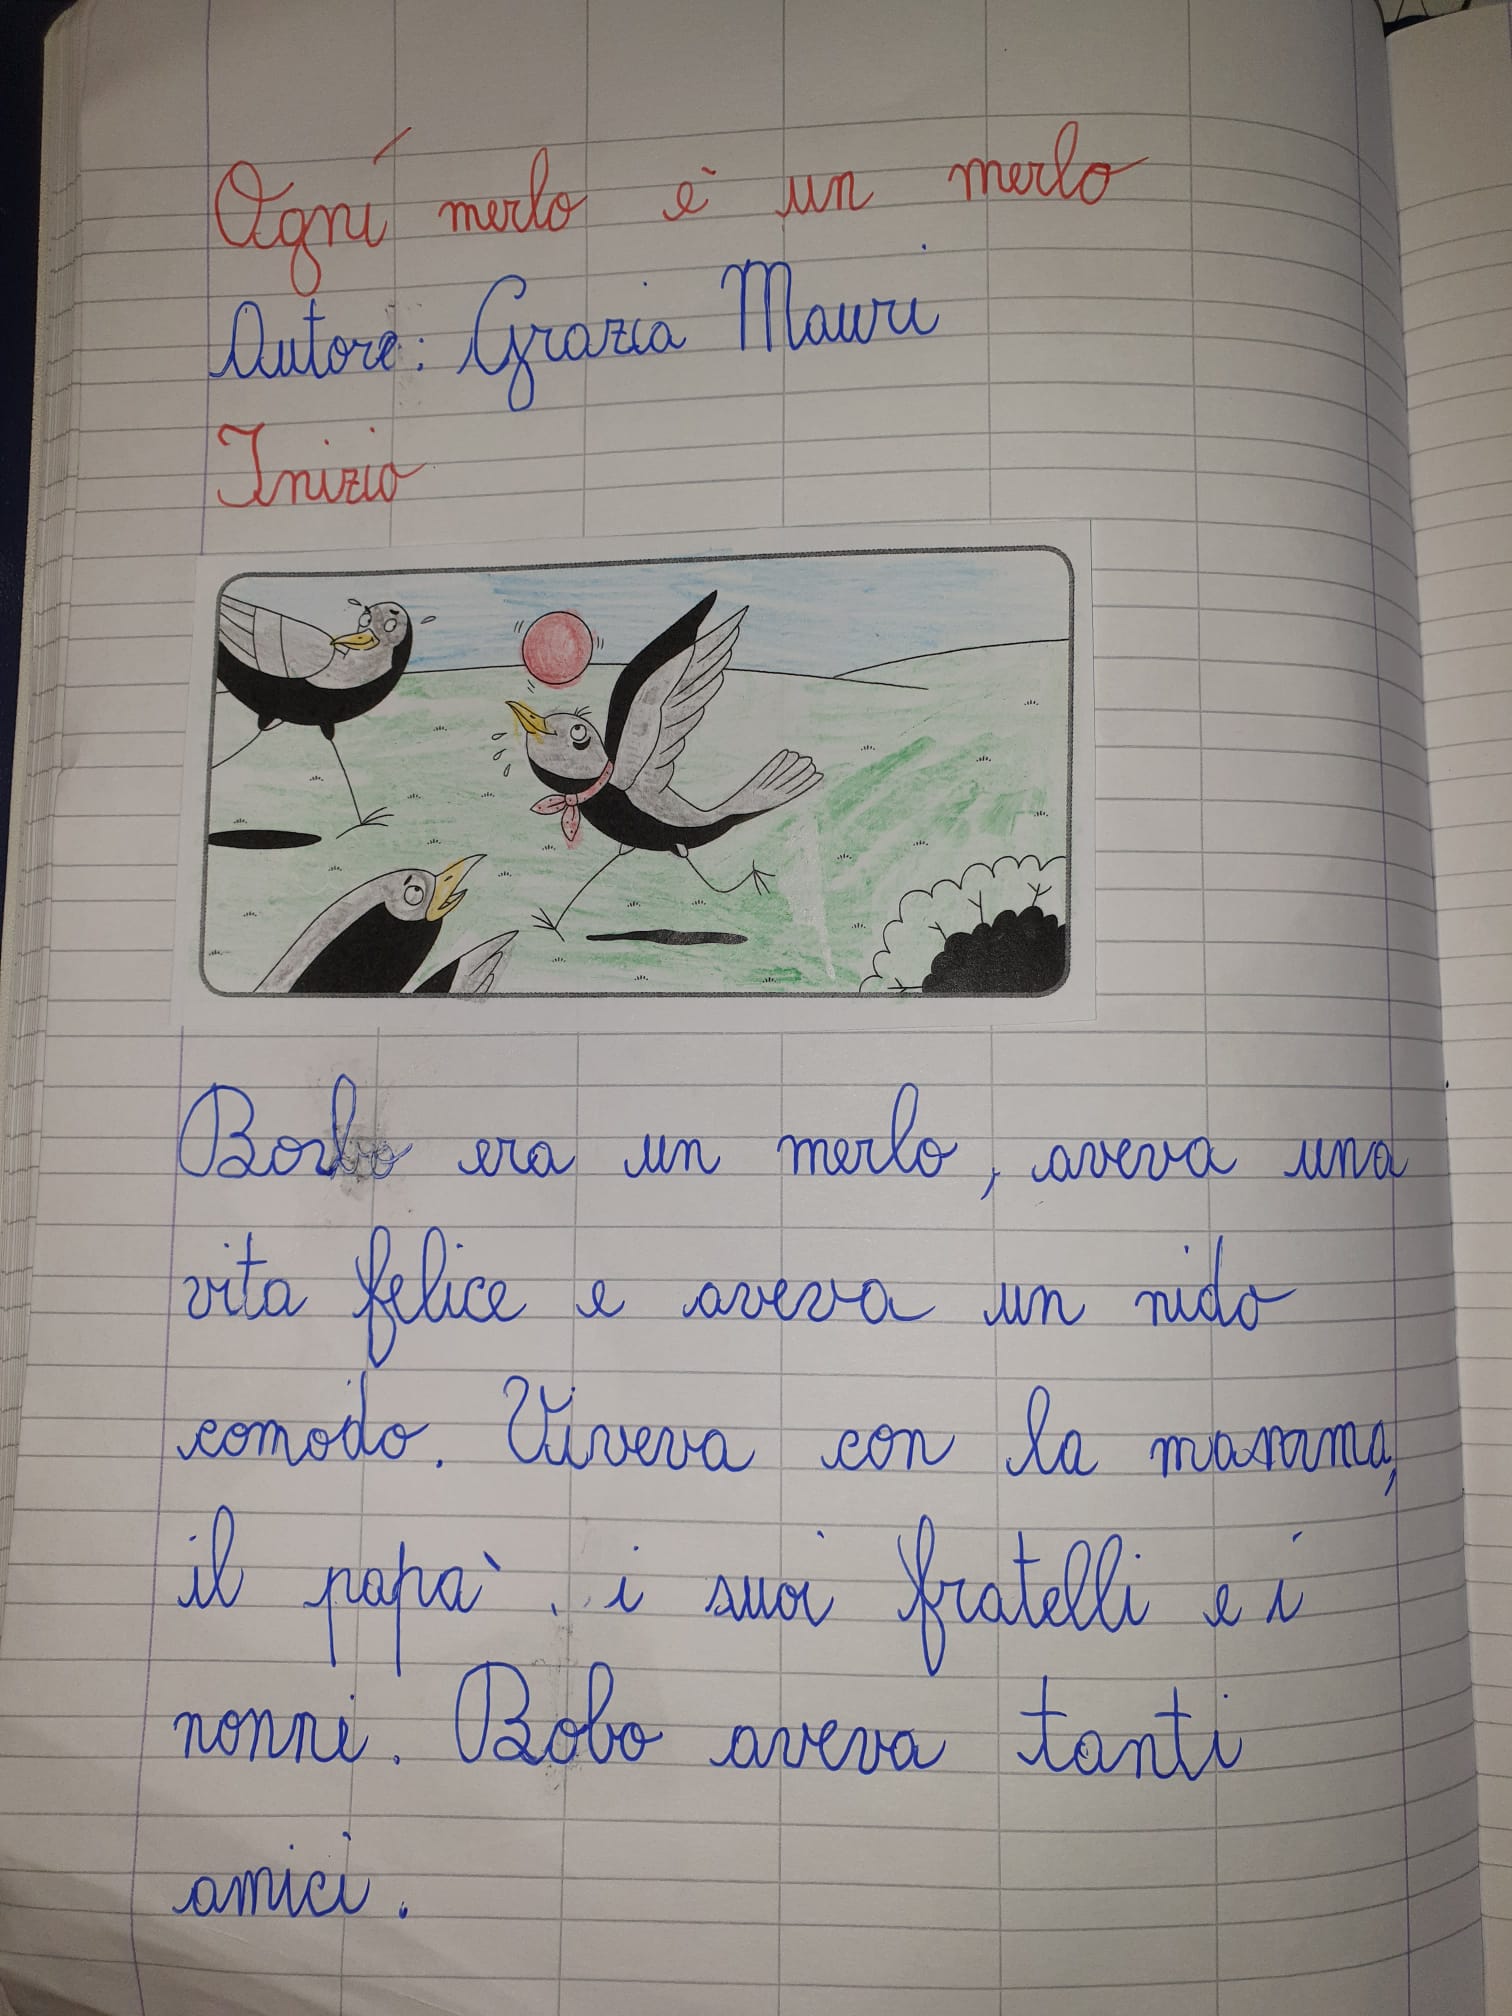 Ogni merlo è un merlo
Autore: Grazia Mauri
Inizio
Borbo era un merlo, aveva una
vita felice e aveva un nido
comodo. Viveva con la mamma,
il papà, i suoi fratelli e i
nonni. Bobo aveva tanti
amici.